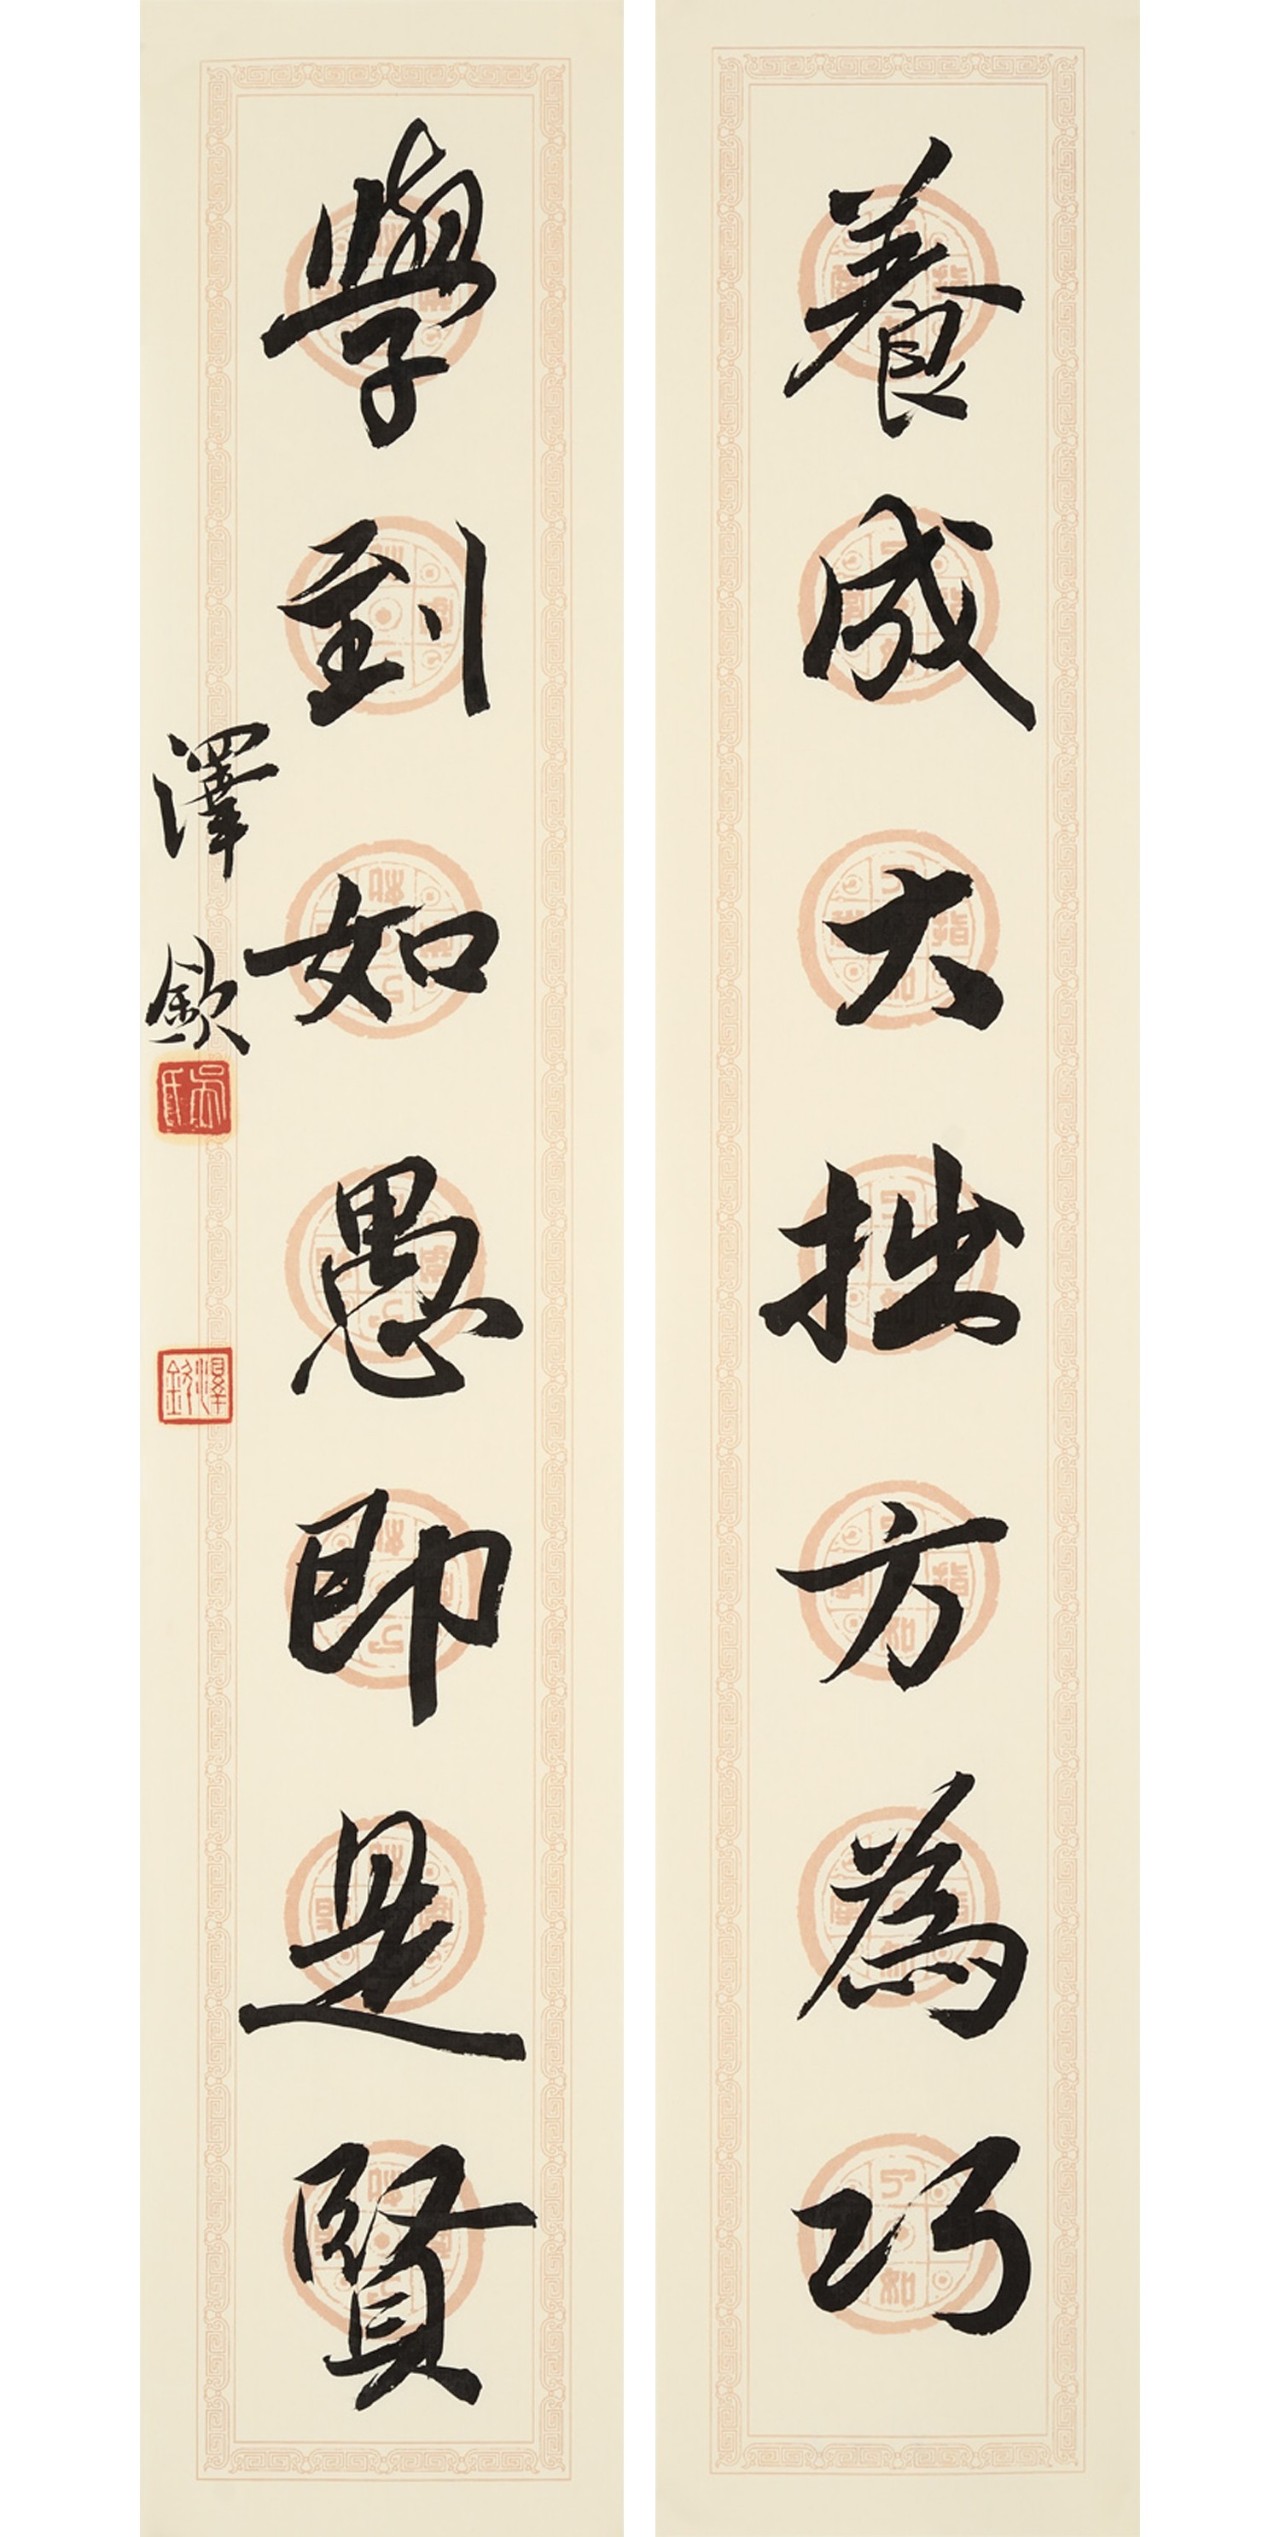 養成大拙方為巧
學到如愚即是賢
澤欽
吳氏
澤欽